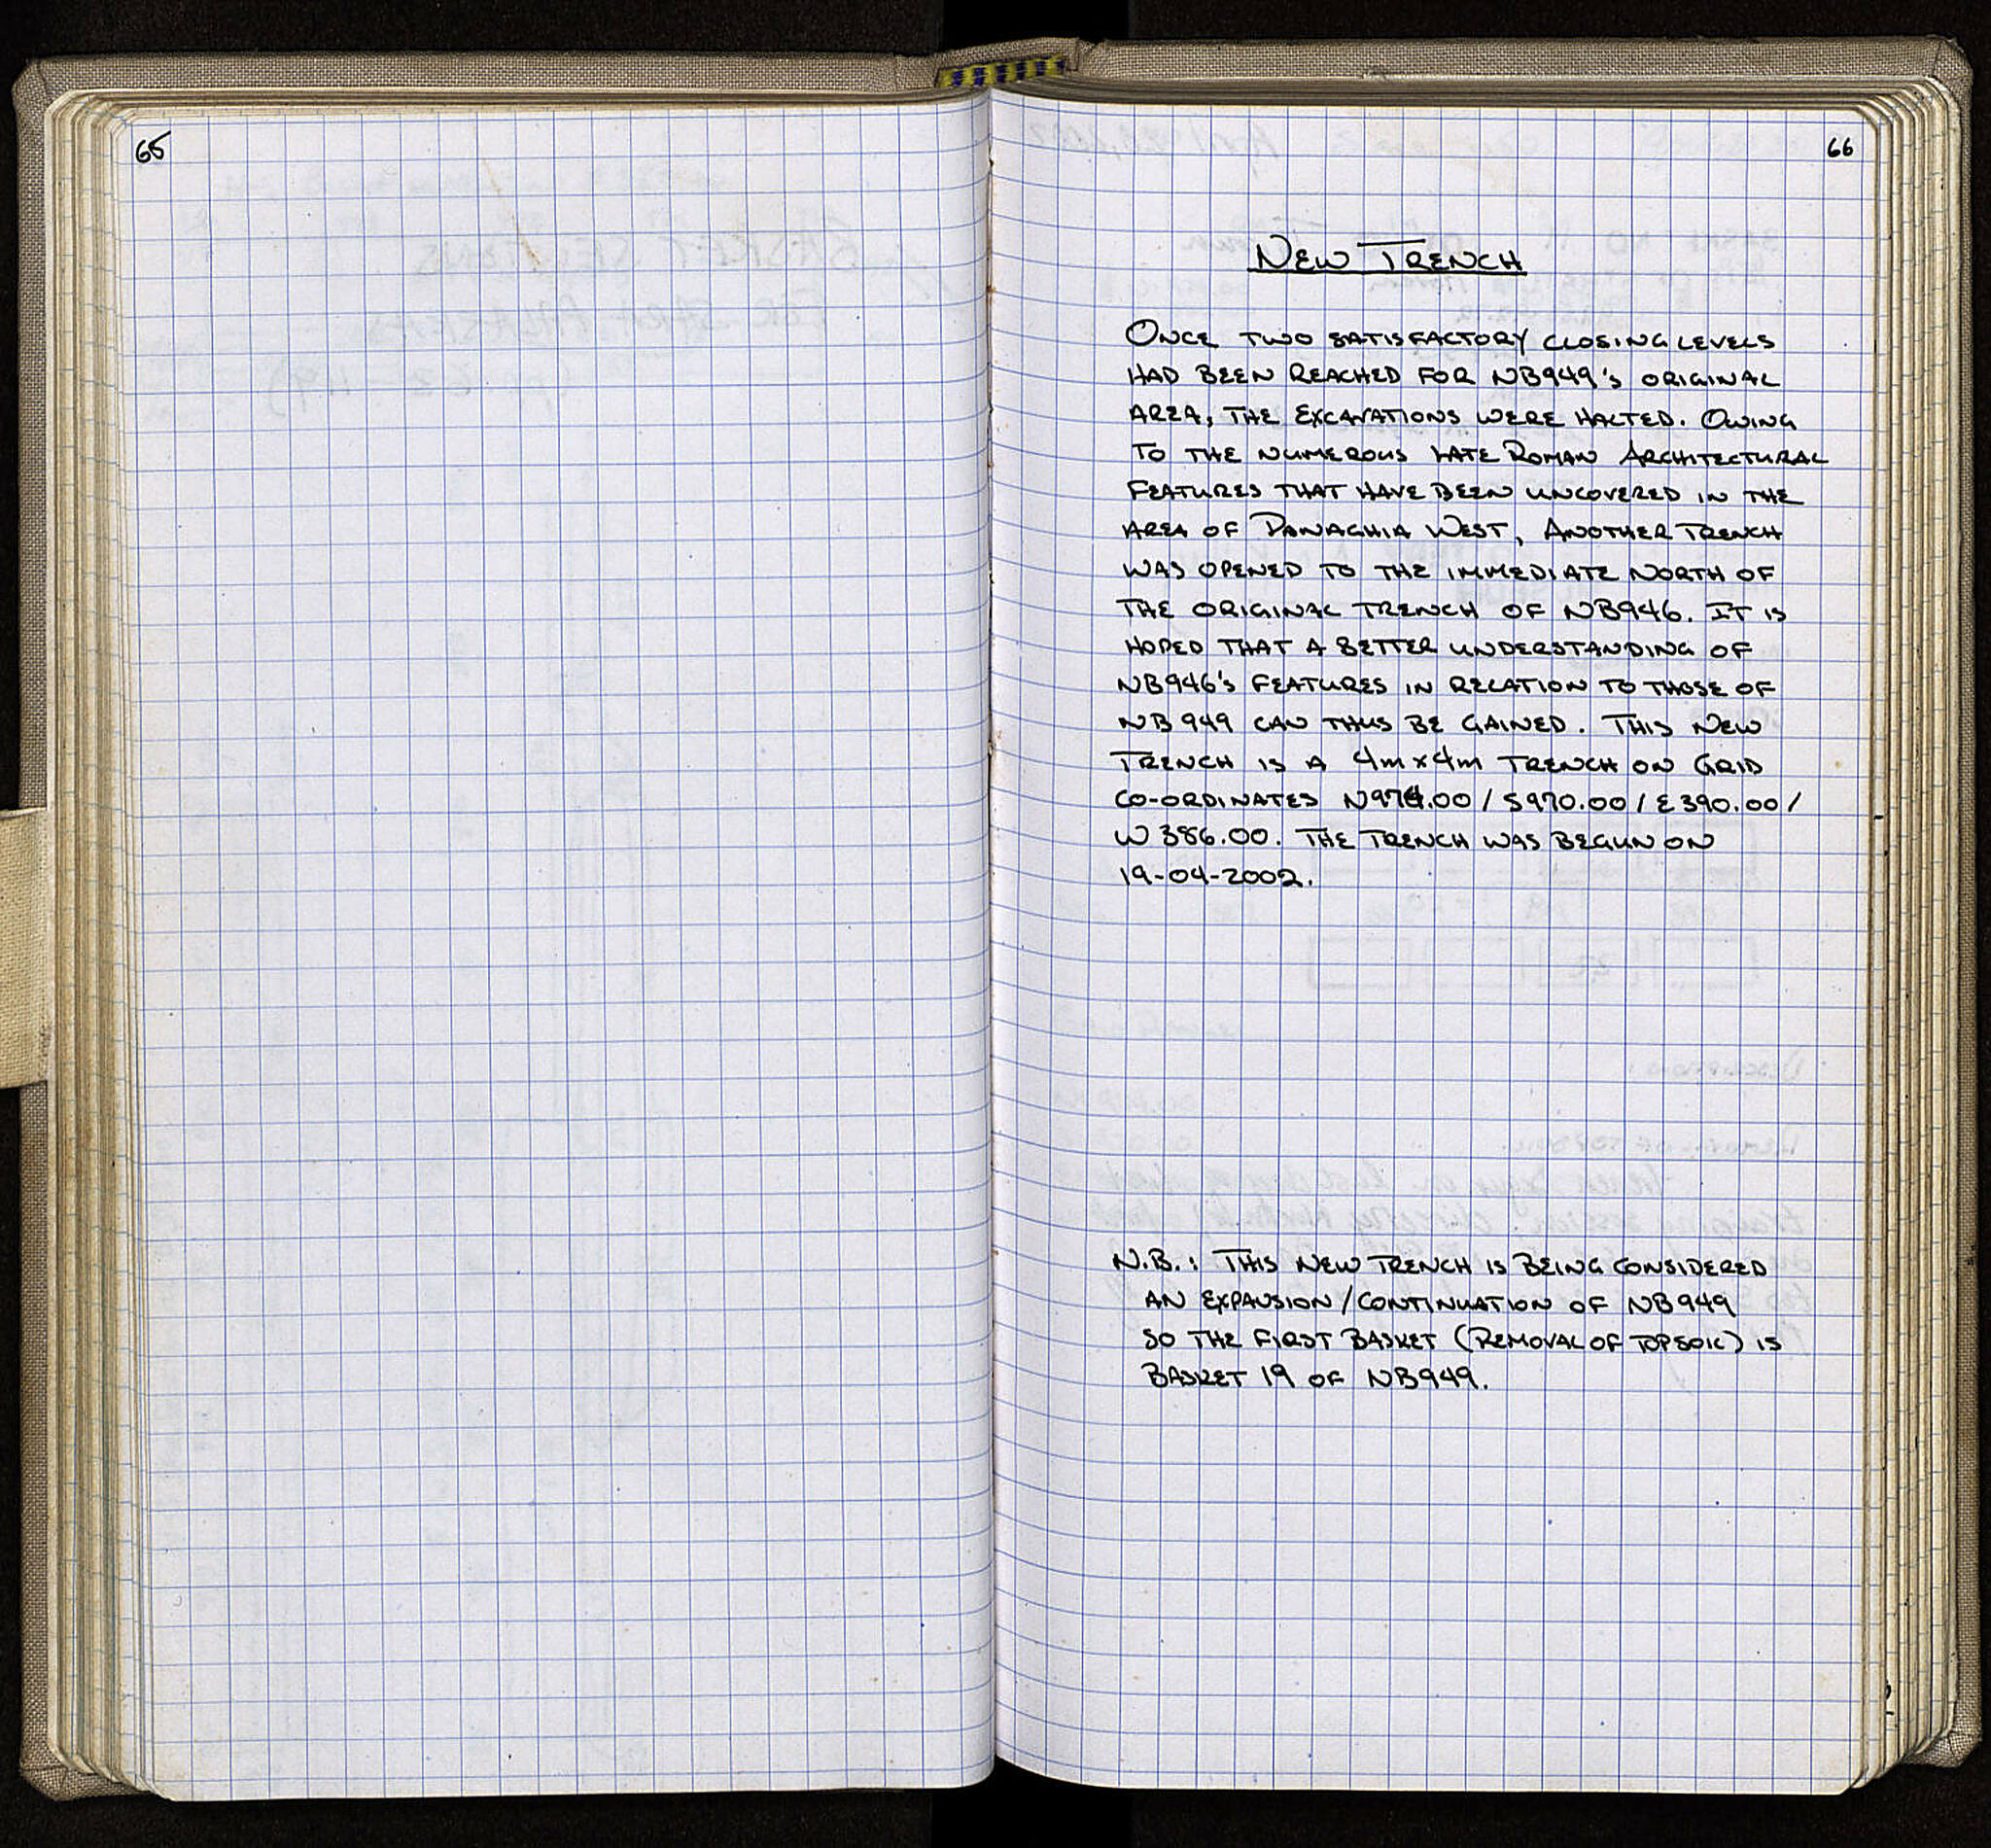 65
66
NEW TRENCH
ONCE TWO SATISFACTORY CLOSING LEVELS
HAD BEEN REACHED FOR NB949's ORIGINAL
AREA, THE EXCAVATIONS WERE HALTED. OWING
TO THE NUMEROUS LATE ROMAN ARCHITECTURAL
FEATURES THAT HAVE BEEN UNCOVERED IN THE
AREA OF PANAGHIA WEST, ANOTHER TRENCH
WAS OPENED TO THE IMMEDIATE NORTH OF
THE ORIGINAL TRENCH OF NB946. IT IS
HOPED THAT A BETTER UNDERSTANDING OF
NB946's FEATURES IN RELATION TO THOSE OF
NB949 CAN THUS BE GAINED. THIS NEW
TRENCH IS A 4m x 4m TRENCH ON GRID
CO-ORDINATES N974.00 / S970.00 / E390.00 /
W386.00. THE TRENCH WAS BEGUN ON
19-04-2002.
N.B.: THIS NEW TRENCH IS BEING CONSIDERED
AN EXPANSION / CONTINUATION OF NB949
SO THE FIRST BASKET (REMOVAL OF TOPSOIL) IS
BASKET 19 OF NB949.